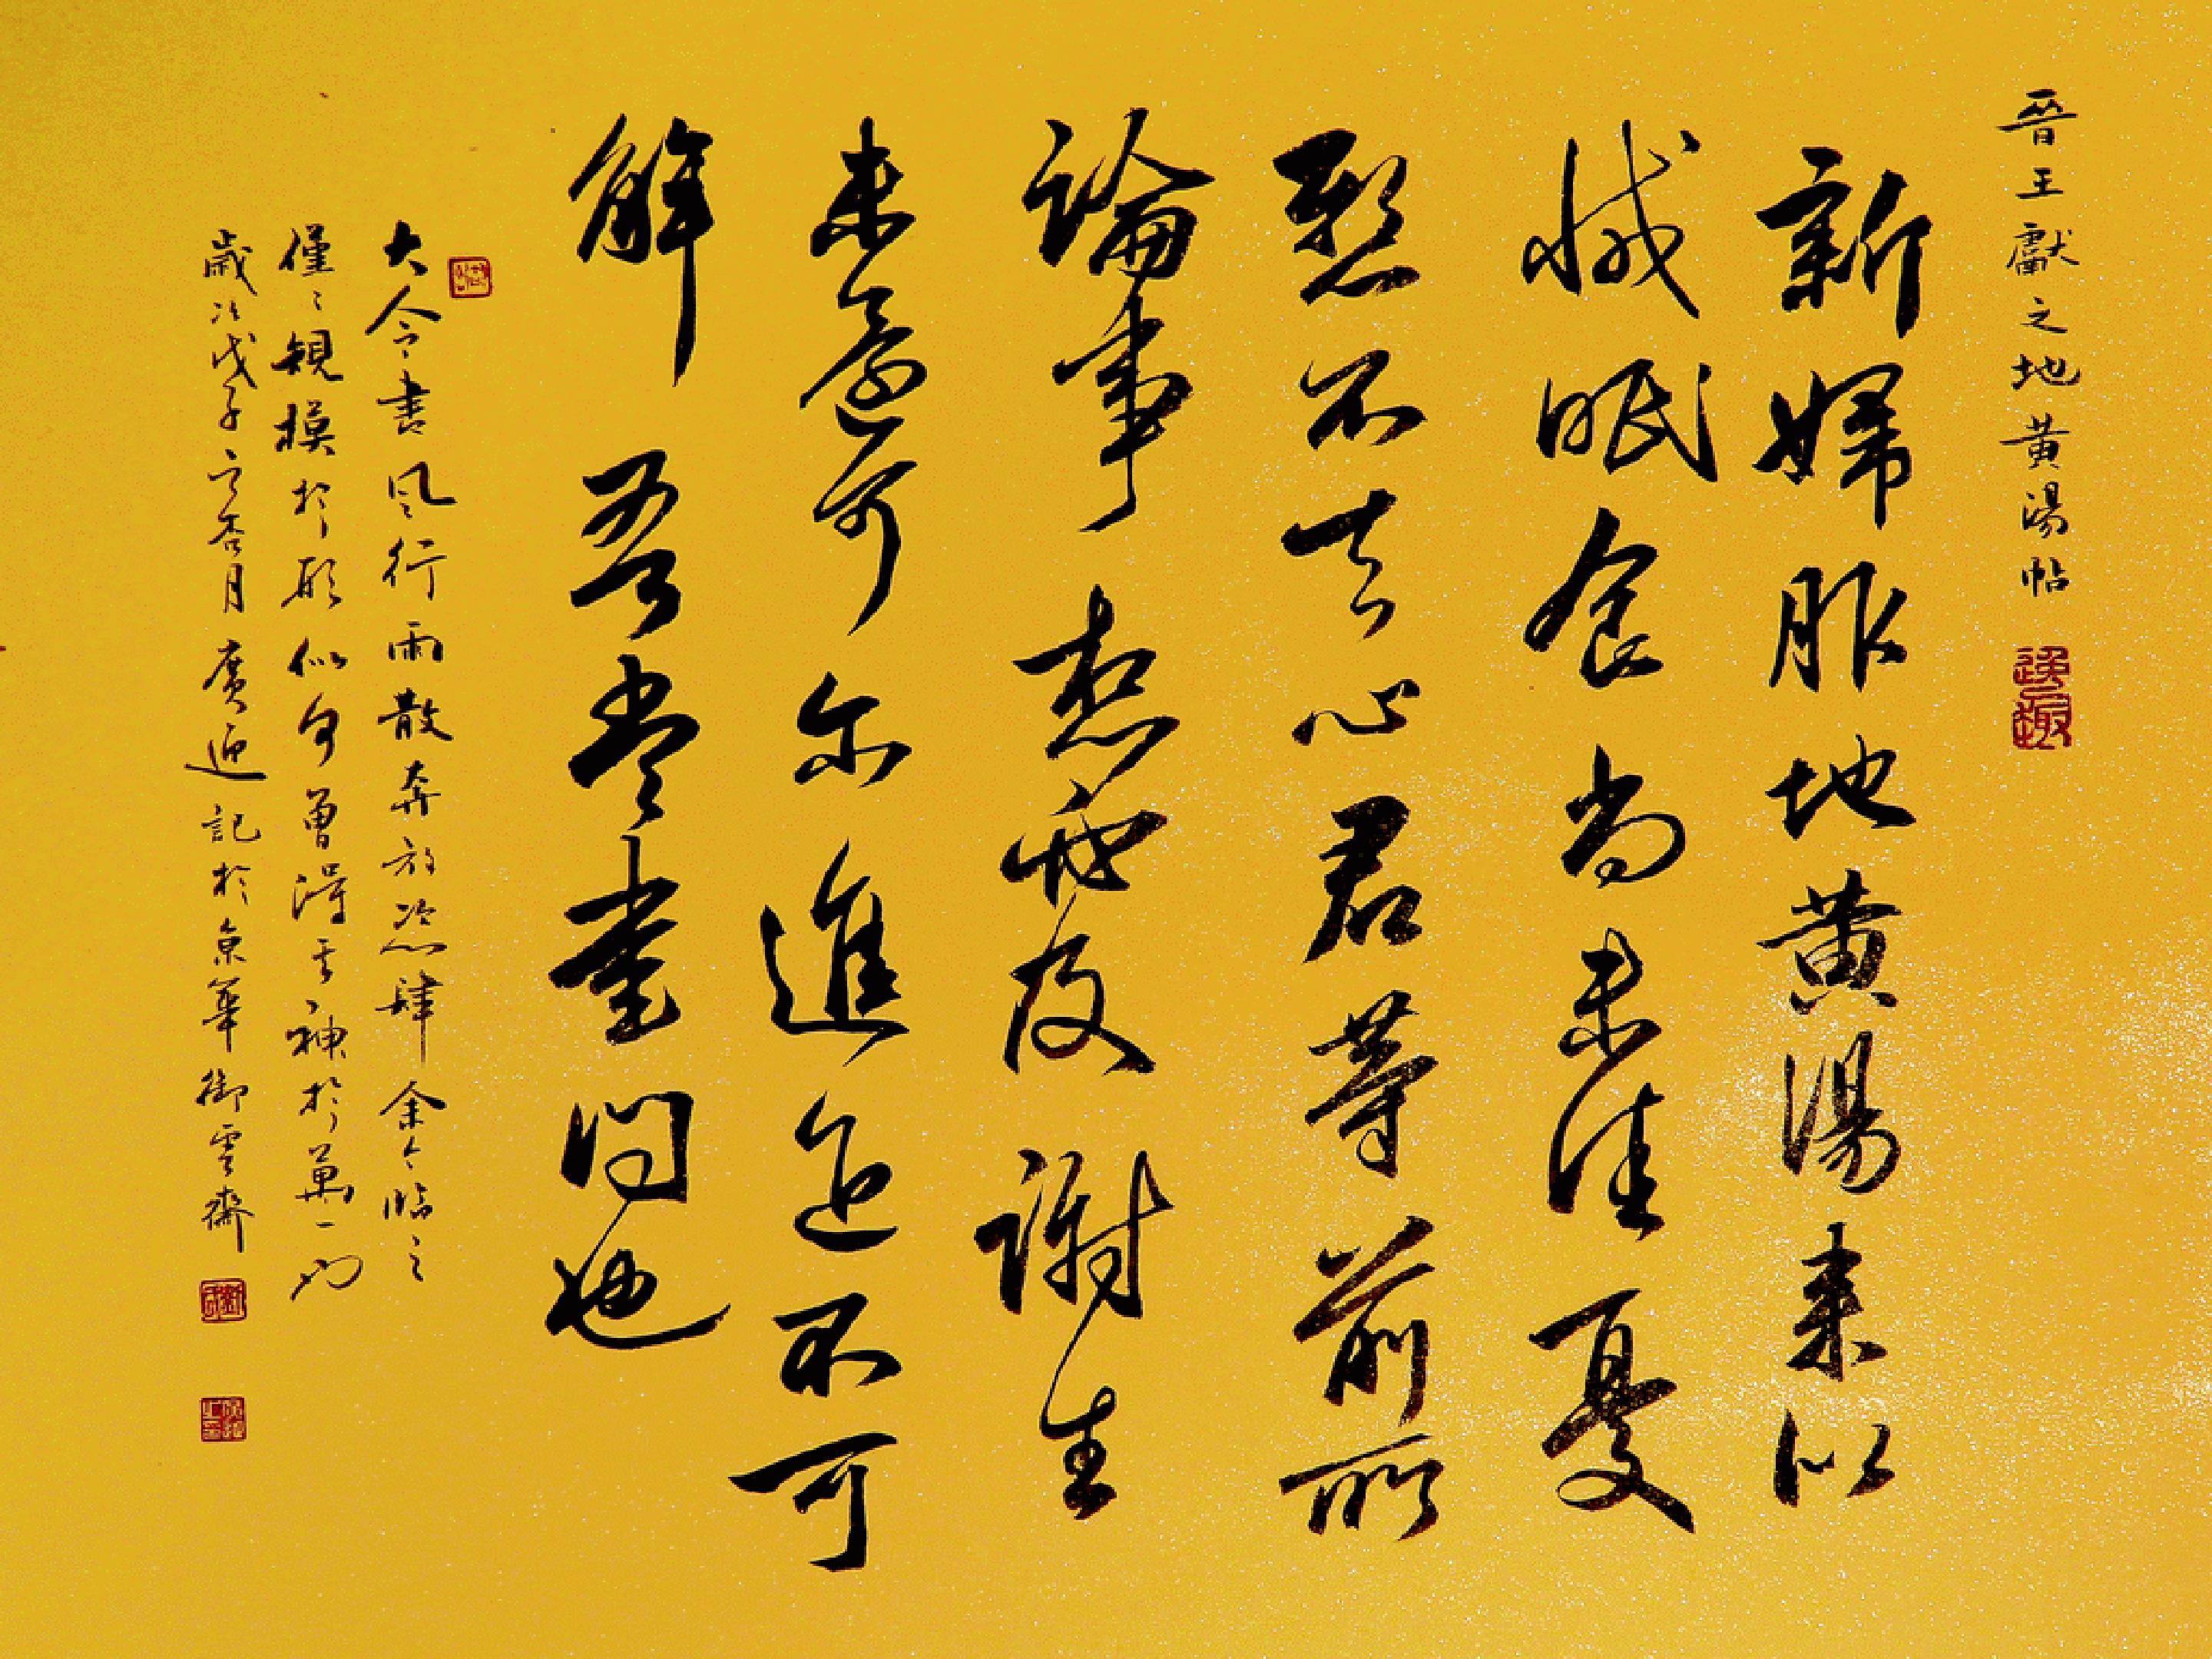 晉王獻之地黃湯帖
新婦服地黃湯來似
減眠食尚未佳憂
懸不去心君等前所
論事想必及謝生
未還可尔進退不可
解吾當書問也
大令書風行雨散奔放恣肆余今臨之
僅僅規模於形似何曾得其神於萬一
歲次戊子杏月廣迎記於京華御雲齋
逸趣